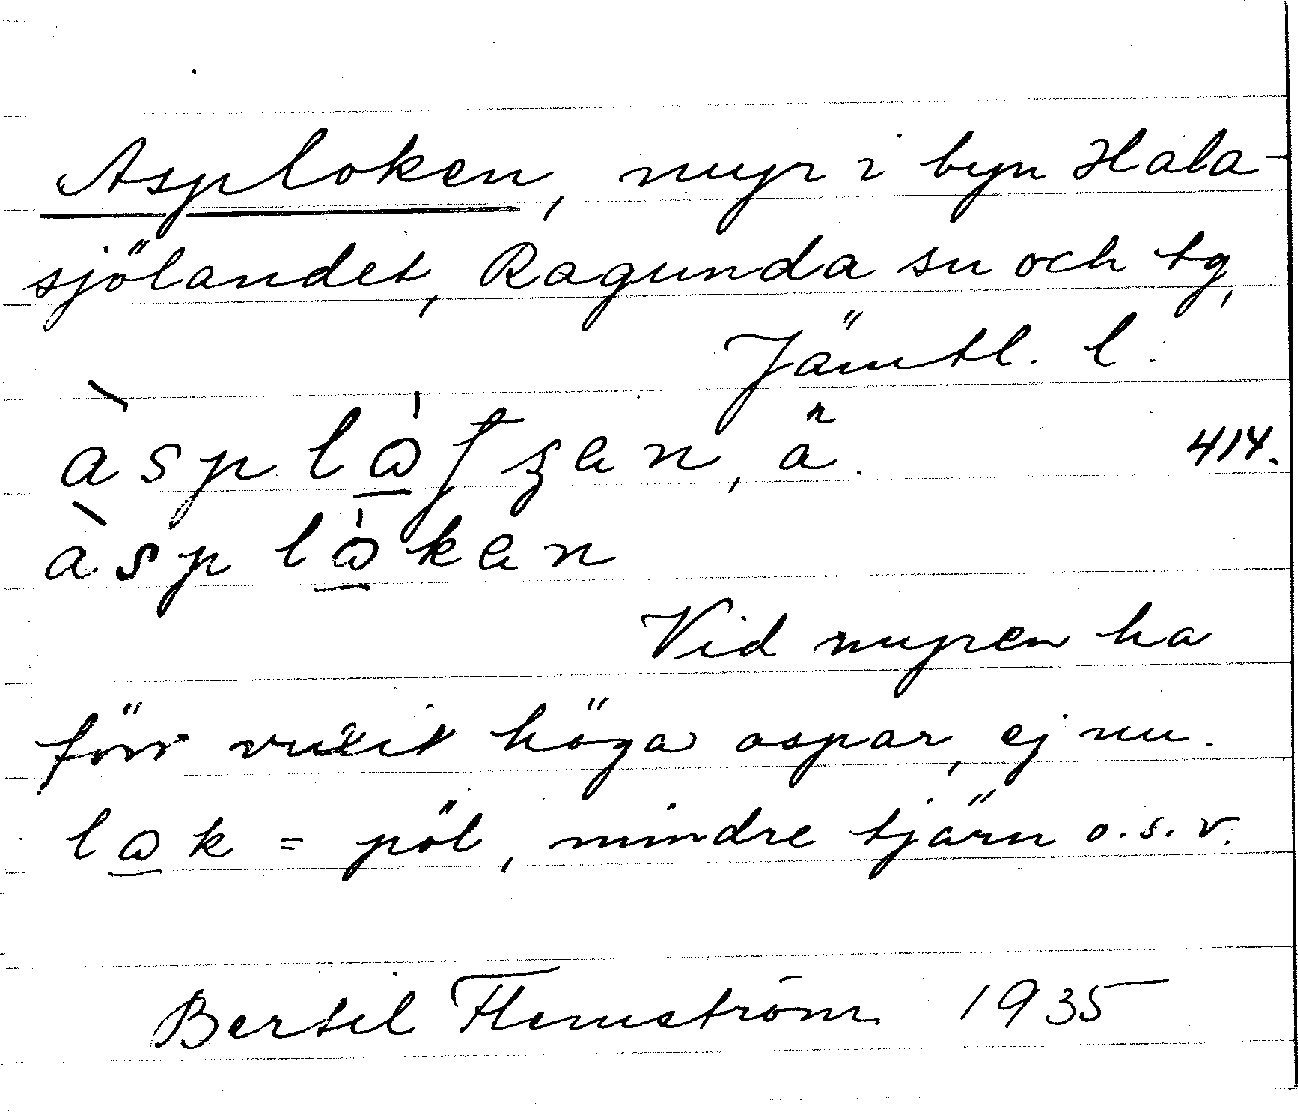 Asploken, myr i byn Håla-
sjölandet, Ragunda sn och tg,
Jämtl. l.
àsplåʃʒen, ä. 414.
àsplåken
Vid myren ha
förr vuxit höga aspar, ej nu.
låk = pöl, mindre tjärn o.s.v.
Bertil Flemström 1935